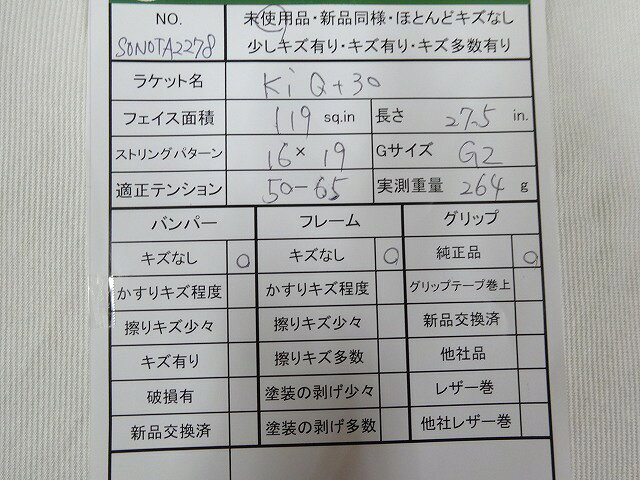 NO.
未使用品・新品同様・ほとんどキズなし
SONOTA2278
少しキズ有り・キズ有り・キズ多数有り
ラケット名 Ki Q+30
フェイス面積 119 sq.in 長さ 27.5 in.
ストリングパターン 16×19 Gサイズ G2
適正テンション 50-65 実測重量 264 g
バンパー フレーム グリップ
キズなし ○ キズなし ○ 純正品 ○
かすりキズ程度 かすりキズ程度 グリップテープ巻上
擦りキズ少々 擦りキズ少々 新品交換済
キズ有り 擦りキズ多数 他社品
破損有 塗装の剥げ少々 レザー巻
新品交換済 塗装の剥げ多数 他社レザー巻